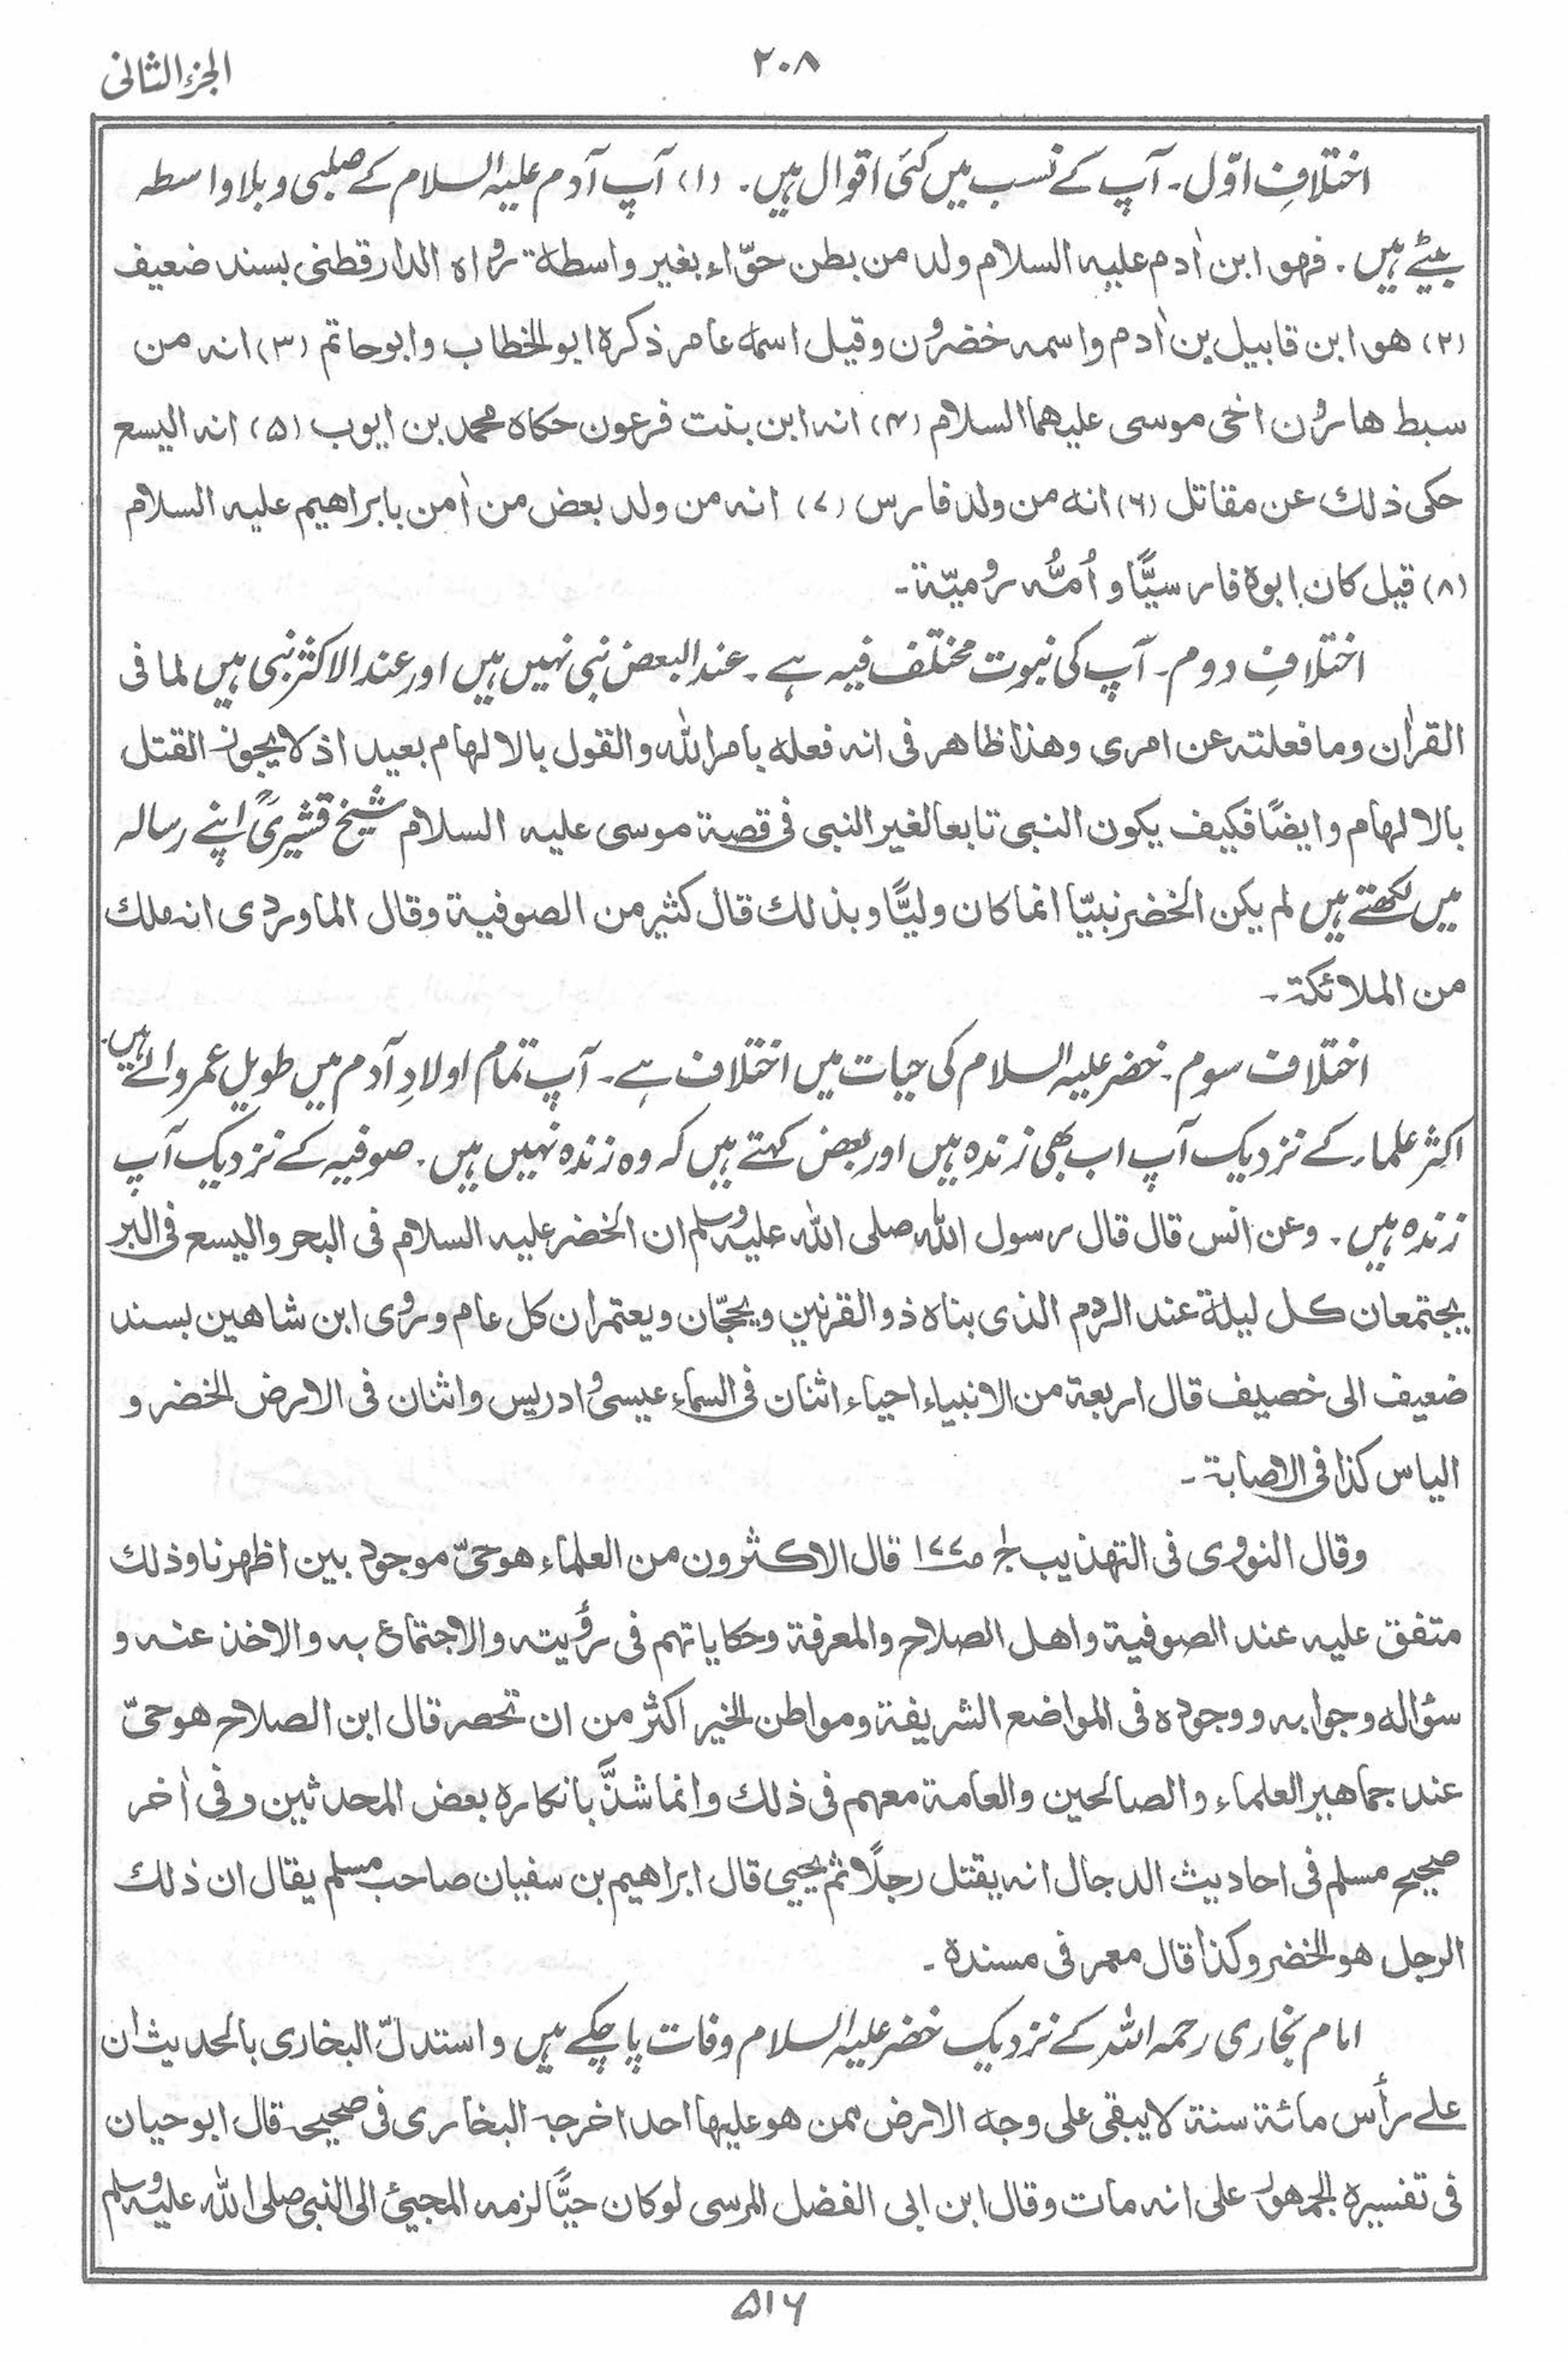 الجزء الثانی
۲۰۸
اختلافِ اوّل۔ آپ کے نسب میں کئی اقوال ہیں۔ (۱) آپ آدم علیہ السلام کے صلبی و بلا واسطہ
بیٹے ہیں۔ فهو ابن اٰدم علیہ السلام ولد من بطن حوّاء بغیر واسطۃ رواہ الدارقطنی بسند ضعیف
(۲) هو ابن قابیل بن اٰدم واسمہ خضرون وقیل اسمہ عامر ذکرہ ابو الخطاب وابوحاتم (۳) انہ من
سبط ھارون اخی موسی علیھما السلام (۴) انہ ابن بنت فرعون حکاہ محمد بن ایوب (۵) انہ الیسع
حکی ذلك عن مقاتل (۶) انہ من ولد فارس (۷) انہ من ولد بعض من اٰمن بابراھیم علیہ السلام
(۸) قیل کان ابوہ فارسیًّا و اُمُّہ رومیّۃ۔
اختلافِ دوم۔ آپ کی نبوت مختلف فیہ ہے۔ عند البعض نبی نہیں ہیں اور عند الاکثر نبی ہیں لما فی
القراٰن وما فعلتہ عن امری وھذا ظاھر فی انہ فعلہ بامر اللہ والقول بالالہام بعید اذ لا یجوز القتل
بالالھام وایضًا فکیف یکون النبی تابعا لغیر النبی فی قصۃ موسی علیہ السلام شیخ قشیریؒ اپنے رسالہ
میں لکھتے ہیں لم یکن الخضر نبیّا انما کان ولیًّا وبذلك قال کثیر من الصوفیۃ وقال الماوردی انہ ملك
من الملائکۃ۔
اختلاف سوم۔ خضر علیہ السلام کی حیات میں اختلاف ہے۔ آپ تمام اولادِ آدم میں طویل عمر والے ہیں۔
اکثر علماء کے نزدیک آپ اب بھی زندہ ہیں اور بعض کہتے ہیں کہ وہ زندہ نہیں ہیں۔ صوفیہ کے نزدیک آپ
زندہ ہیں۔ وعن انس قال قال رسول اللہ صلی اللہ علیہ وسلم ان الخضر علیہ السلام فی البحر والیسع فی البر
یجتمعان کل لیلۃ عند الردم الذی بناہ ذوالقرنین ویحجّان ویعتمران کل عام وروی ابن شاھین بسند
ضعیف الی خصیف قال اربعۃ من الانبیاء احیاء اثنان فی السماء عیسی وادریس واثنان فی الارض الخضر و
الیاس کذا فی الاصابۃ۔
وقال النووی فی التھذیب ج۱ ص۱۷۷ قال الاکثرون من العلماء ھو حیّ موجود بین اظھرنا وذلك
متفق علیہ عند الصوفیۃ واھل الصلاح والمعرفۃ وحکایاتھم فی رؤیتہ والاجتماع بہ والاخذ عنہ و
سؤالہ وجوابہ ووجودہ فی المواضع الشریفۃ ومواطن الخیر اکثر من ان تحصر قال ابن الصلاح ھو حیّ
عند جماھیر العلماء والصالحین والعامۃ معھم فی ذلك وانما شذَّ بانکارہ بعض المحدثین وفی اٰخر
صحیح مسلم فی احادیث الدجال انہ یقتل رجلًا ثم یحیی قال ابراھیم بن سفیان صاحب مسلم یقال ان ذلك
الرجل ھو الخضر وکذا قال معمر فی مسندہ۔
امام بخاری رحمہ اللہ کے نزدیک خضر علیہ السلام وفات پا چکے ہیں واستدلّ البخاری بالحدیث ان
علے رأس مائۃ سنۃ لا یبقی علی وجہ الارض ممن ھو علیھا احد اخرجہ البخاری فی صحیحہ قال ابوحیان
فی تفسیرہ الجمھور علی انہ مات وقال ابن ابی الفضل المرسی لو کان حیًّا لزمہ المجیئ الی النبی صلی اللہ علیہ وسلم
۵۱۶